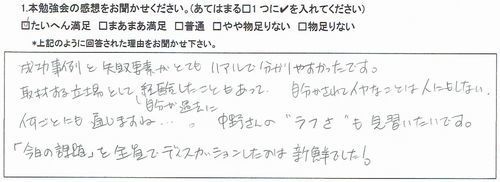 1.本勉強会の感想をお聞かせください。(あてはまる□1つに✔を入れてください)
☑たいへん満足 □まあまあ満足 □普通 □やや物足りない □物足りない
*上記のように回答された理由をお聞かせ下さい。
成功事例と失敗要素がとてもリアルで分かりやすかったです。
取材する立場として経験したこともあって、自分がされてイヤなことは人にもしない。
自分が過去に
何ごとにも通じますね…。中野さんの"ラフさ"も見習いたいです。
「今日の課題」を全員でディスカッションしたのは新鮮でした!